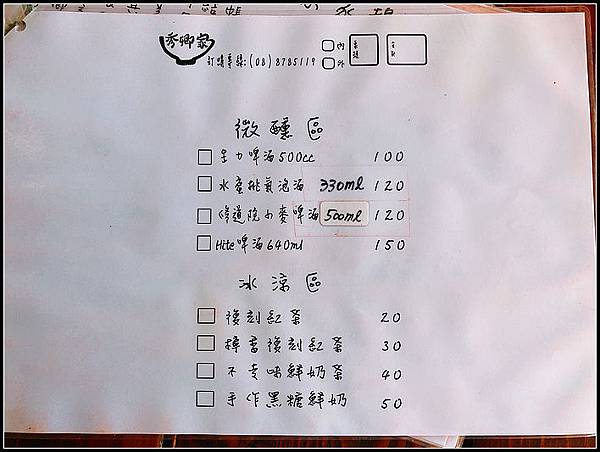 秀卿家
訂購專線:(08)8785119
內
外
微醺區
生力啤酒500cc 100
水蜜桃氣泡酒 330ml 120
修道院小麥啤酒 500ml 120
Hite啤酒640ml 150
冰涼區
復刻紅茶 20
檸檬復刻紅茶 30
不走味鮮奶茶 40
手作黑糖鮮奶 50